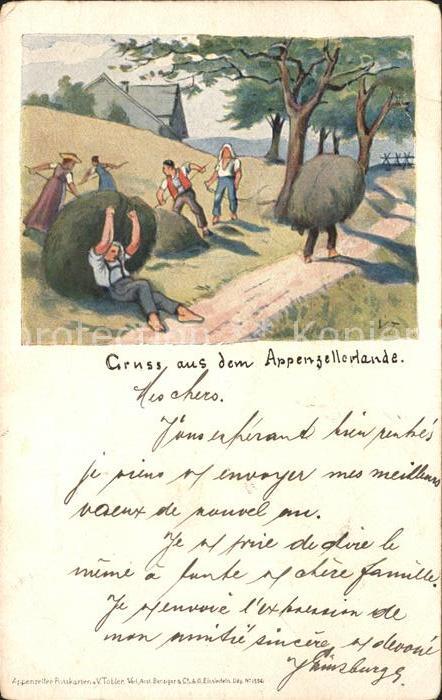 Gruss aus dem Appenzellerlande.
Mes chers.
Vous espérant bien rentrés
je viens vs envoyer mes meilleurs
vœux de nouvel an.
Je vs prie de dire le
même à toute vs chère famille.
Je vs envoie l'expression de
mon amitié sincère & dévoué
Appenzeller Postkarten v. V. Tobler. Verl. Anst. Benziger & Co. A.G. Einsiedeln. Dép. No
V.T.